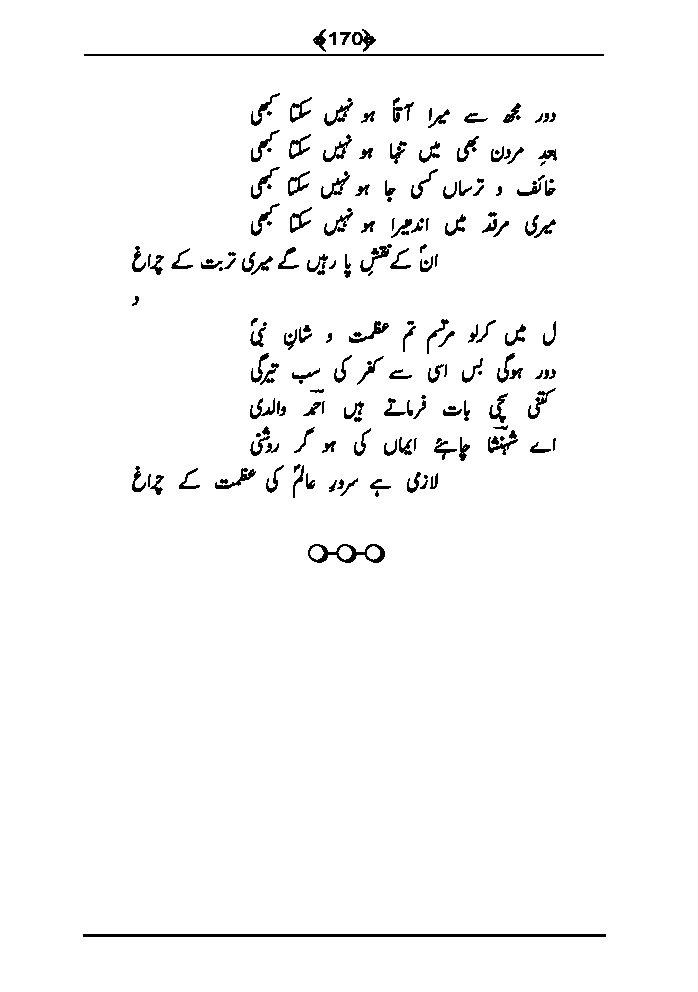 ﴿170﴾
دور مجھ سے میرا آقاؐ ہو نہیں سکتا کبھی
بعدِ مردن بھی میں تنہا ہو نہیں سکتا کبھی
خائف و ترساں کسی جا ہو نہیں سکتا کبھی
میری مرقد میں اندھیرا ہو نہیں سکتا کبھی
انؐ کے نقشِ پا رہیں گے میری تربت کے چراغ
د
ل میں کرلو مرتسم تم عظمت و شانِ نبیؐ
دور ہوگی بس اسی سے کفر کی سب تیرگی
کتنی سچی بات فرماتے ہیں احمدؔ والدی
اے شہنشاؔ چاہئے ایماں کی ہو گر روشنی
لازمی ہے سرورِ عالمؐ کی عظمت کے چراغ